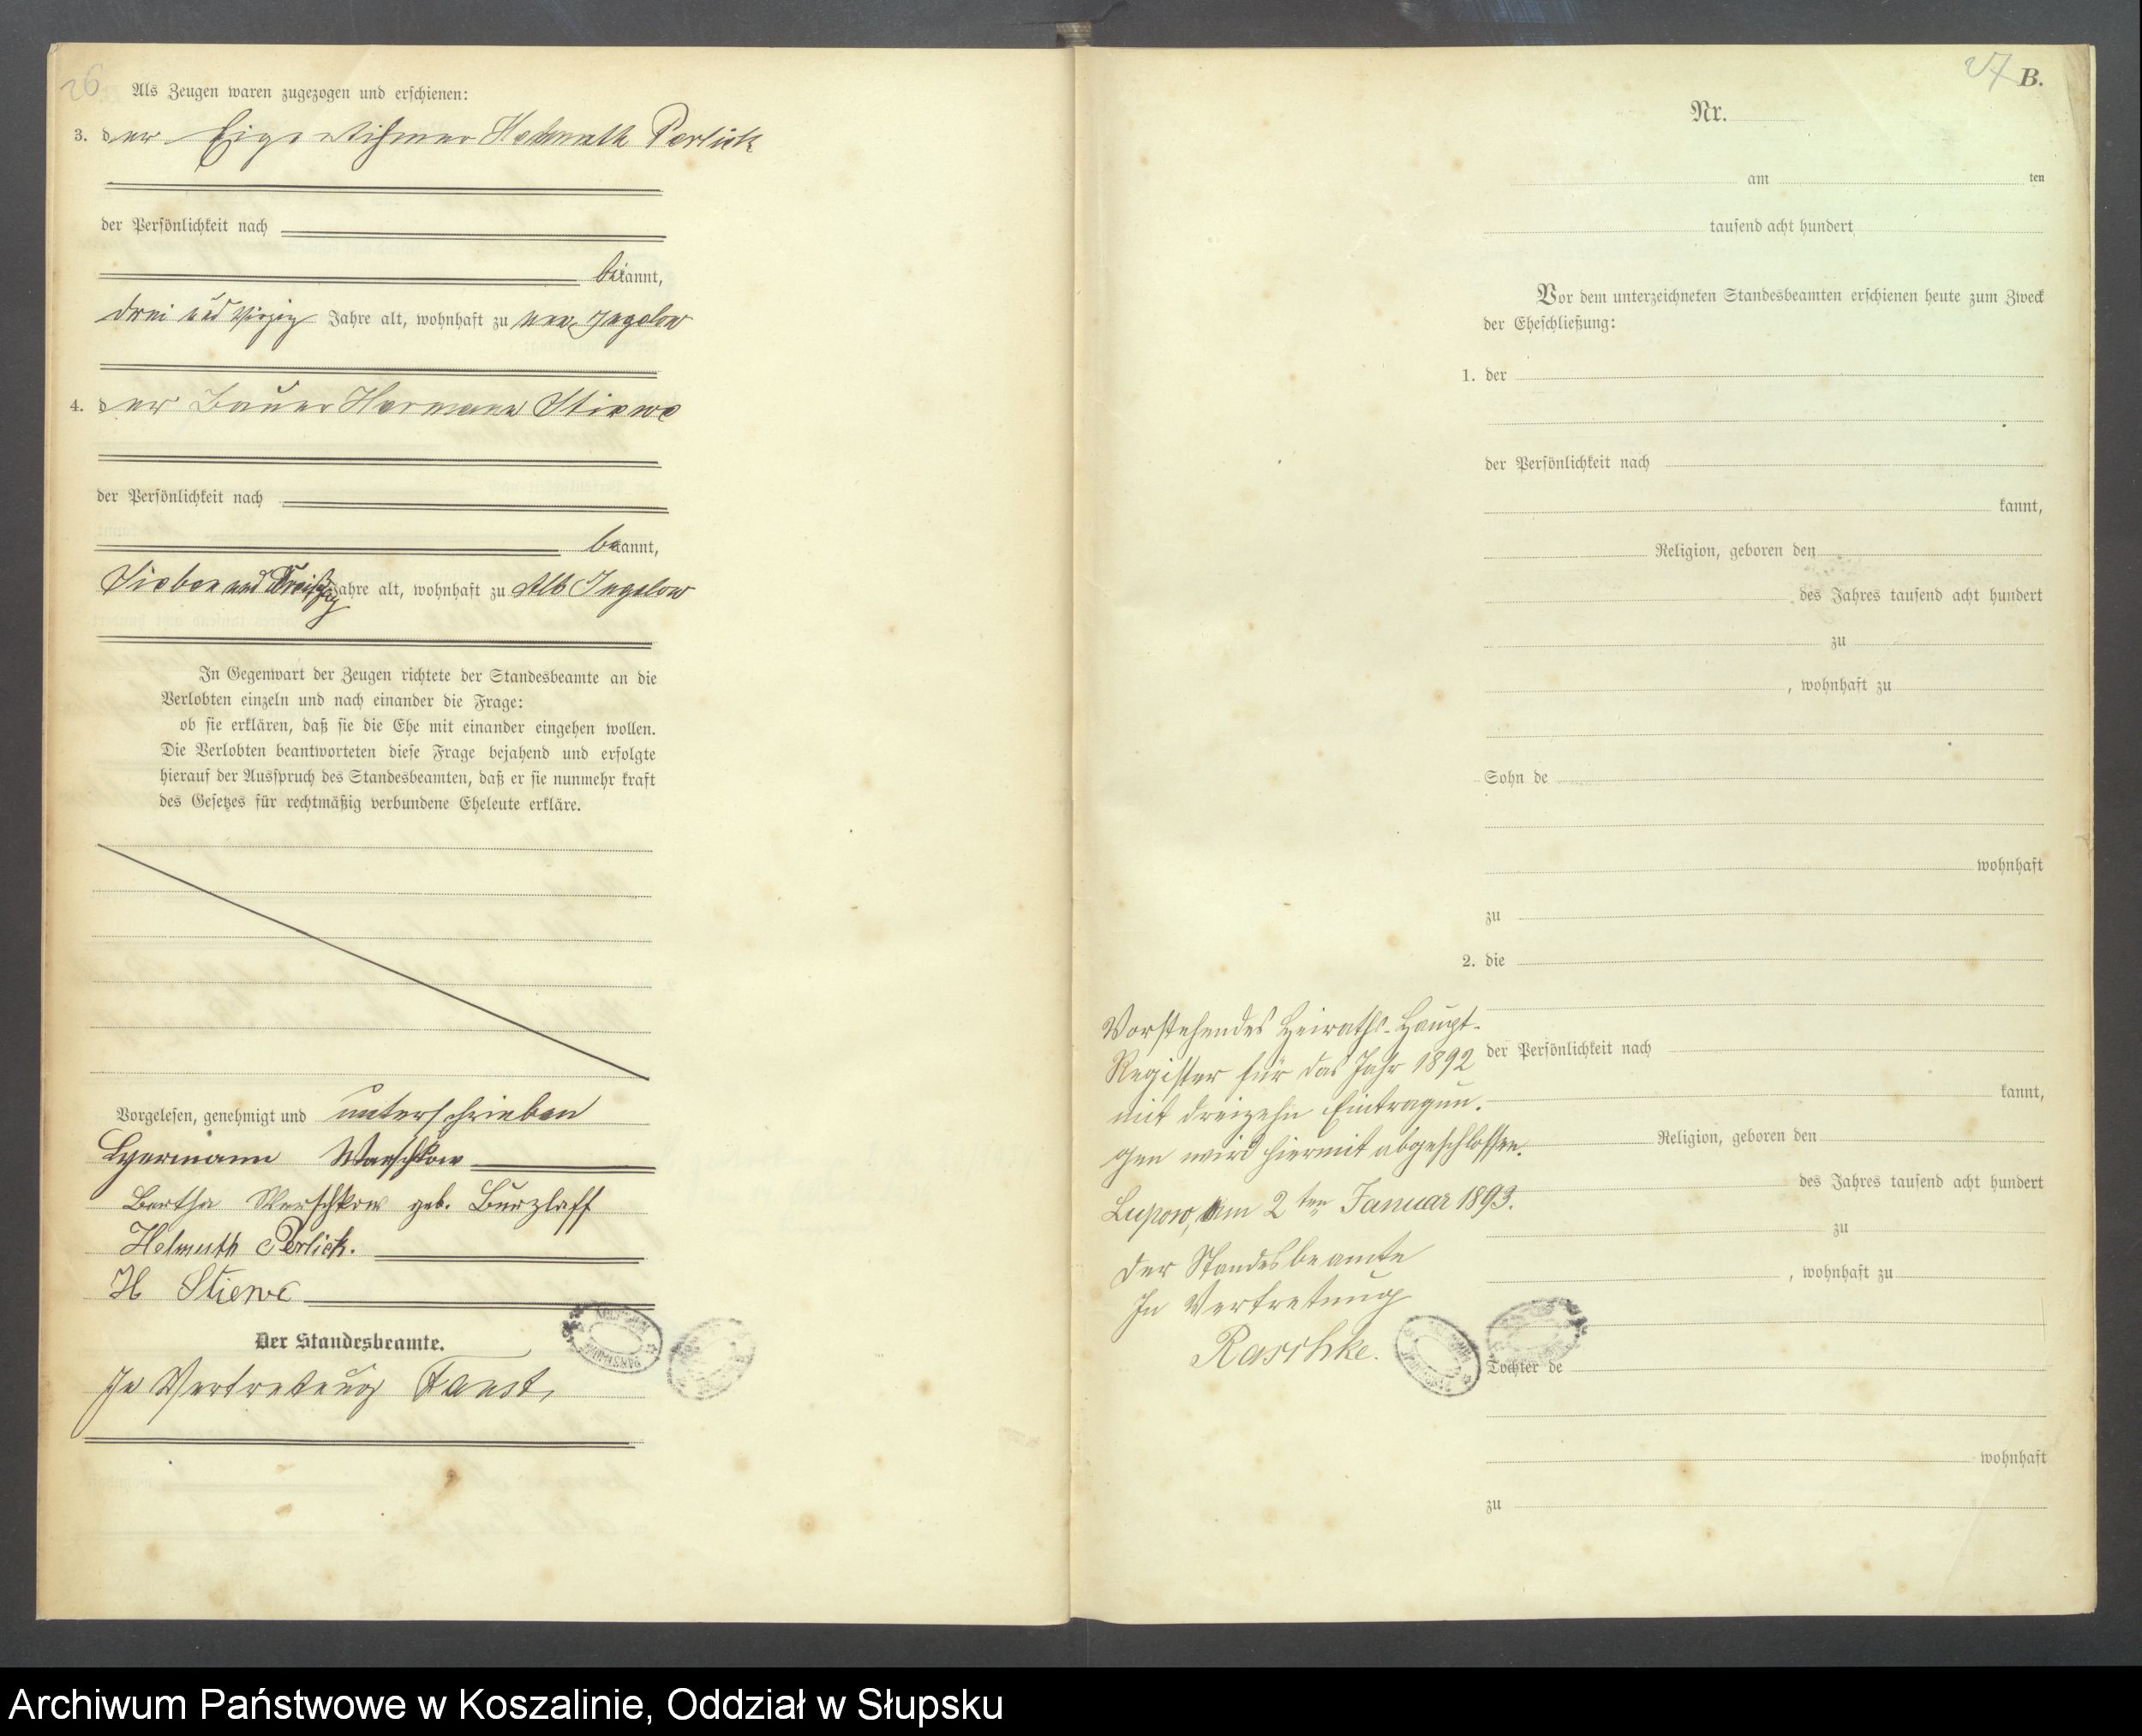 26
Als Zeugen waren zugezogen und erschienen:
3. der Eigenthümer Helmuth Perlick
der Persönlichkeit nach
bekannt,
drei und vierzig Jahre alt, wohnhaft zu Neu Jugelow
4. der Bauer Hermann Stiewe
der Persönlichkeit nach
bekannt,
Sieben und Dreißig Jahre alt, wohnhaft zu Alt Jugelow
In Gegenwart der Zeugen richtete der Standesbeamte an die
Verlobten einzeln und nach einander die Frage:
ob sie erklären, daß sie die Ehe mit einander eingehen wollen.
Die Verlobten beantworteten diese Frage bejahend und erfolgte
hierauf der Ausspruch des Standesbeamten, daß er sie nunmehr kraft
des Gesetzes für rechtmäßig verbundene Eheleute erkläre.
Vorgelesen, genehmigt und unterschrieben
Hermann Warschkow
Bertha Warschkow geb. Burzlaff
Helmuth Perlick.
H Stiewe
Der Standesbeamte.
In Vertretung Faust,
27
B.
Nr.
am ten
tausend acht hundert
Vor dem unterzeichneten Standesbeamten erschienen heute zum Zweck
der Eheschließung:
1. der
der Persönlichkeit nach
kannt,
Religion, geboren den
des Jahres tausend acht hundert
zu
, wohnhaft zu
Sohn de
wohnhaft
zu
2. die
der Persönlichkeit nach
kannt,
Religion, geboren den
des Jahres tausend acht hundert
zu
, wohnhaft zu
Tochter de
wohnhaft
zu
Vorstehendes Heiraths-Haupt-
Register für das Jahr 1892
mit dreizehn Eintragun-
gen wird hiermit abgeschlossen.
Lupow, am 2ten Januar 1893.
Der Standesbeamte
In Vertretung
Raschke.
Archiwum Państwowe w Koszalinie, Oddział w Słupsku